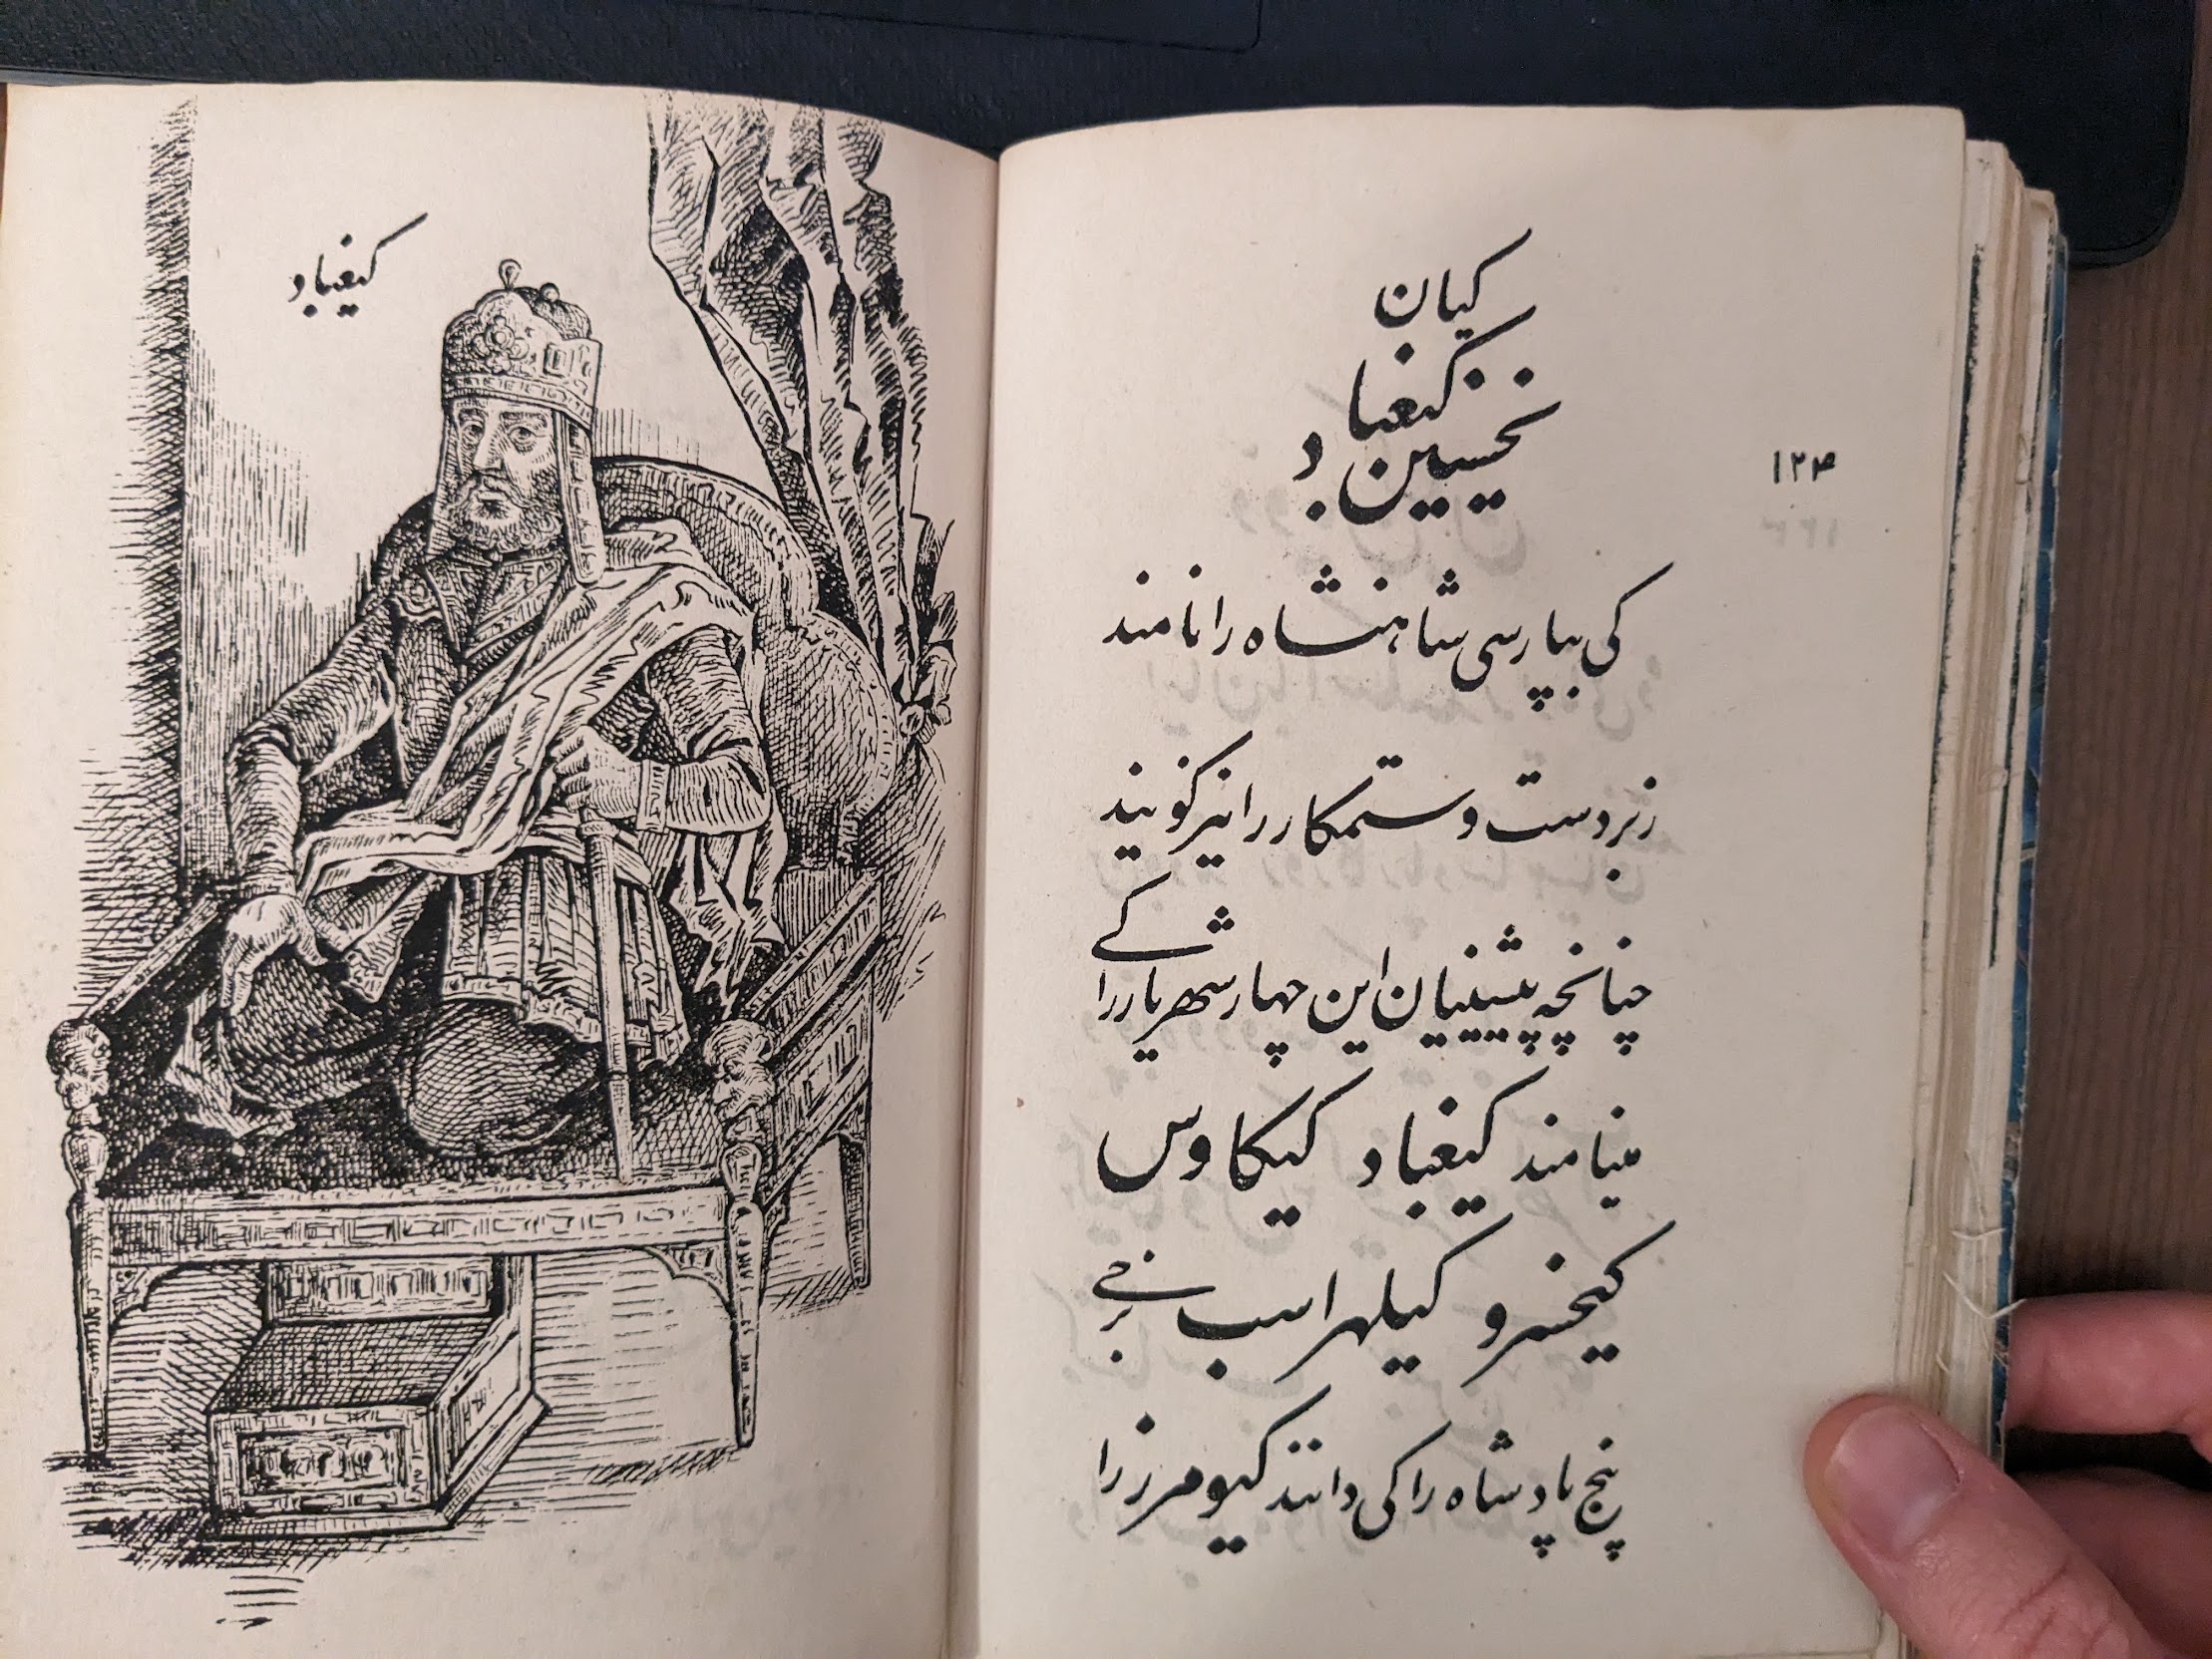 کیقباد
کیان
کیقباد
نخستین
۱۲۴
کی بپارسی شاهنشاه را نامند
زبردست و ستمکار را نیز گویند
چنانچه پیشینیان این چهار شهریار را کی
مینامند کیقباد کیکاوس
کیخسرو کیلهراسب برخی
پنج پادشاه را کی دانند کیومرز را